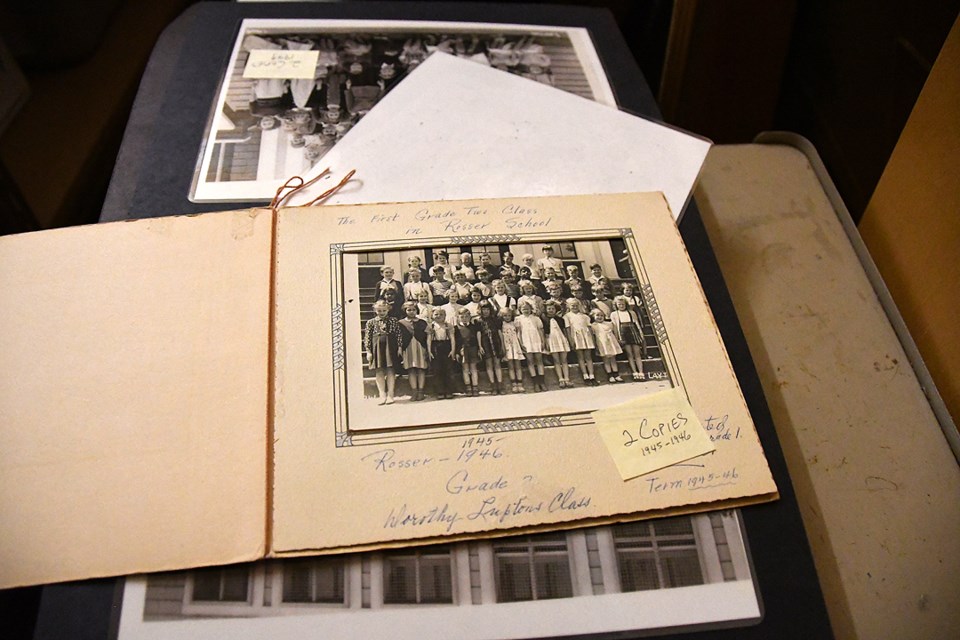 2 COPIES
The First Grade Two Class
in Rosser School
1945-
Rosser - 1946.
Grade
Worothy Luptons Class.
2 COPIES
1945-1946
te of
rade 1.
Term 1945-46